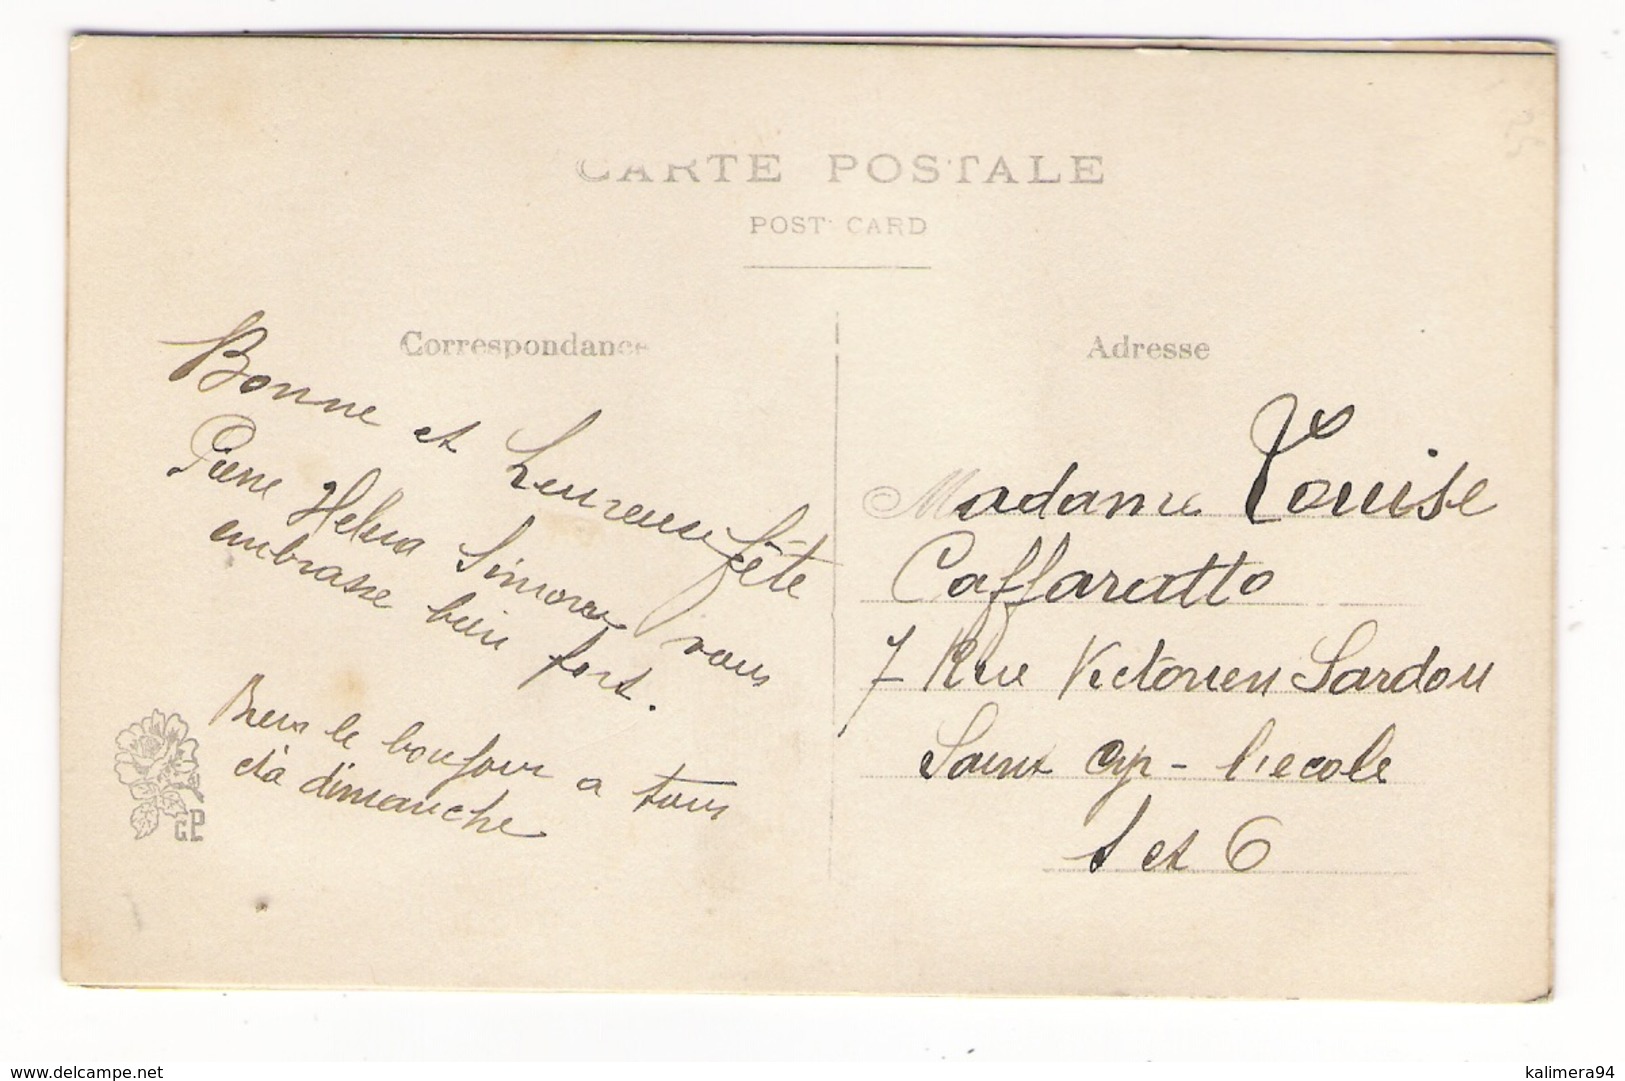 CARTE POSTALE
POST CARD
Correspondance
Bonne et heureuse fête
Pierre Helena Simone vous
embrasse bien fort.
Bien le bonjour a tous
et a dimanche
GP
Adresse
Madame Louise
Caffaratto
7 Rue Victorien Sardou
Saint Cyr - l'ecole
S et O
www.delcampe.net
kalimera94